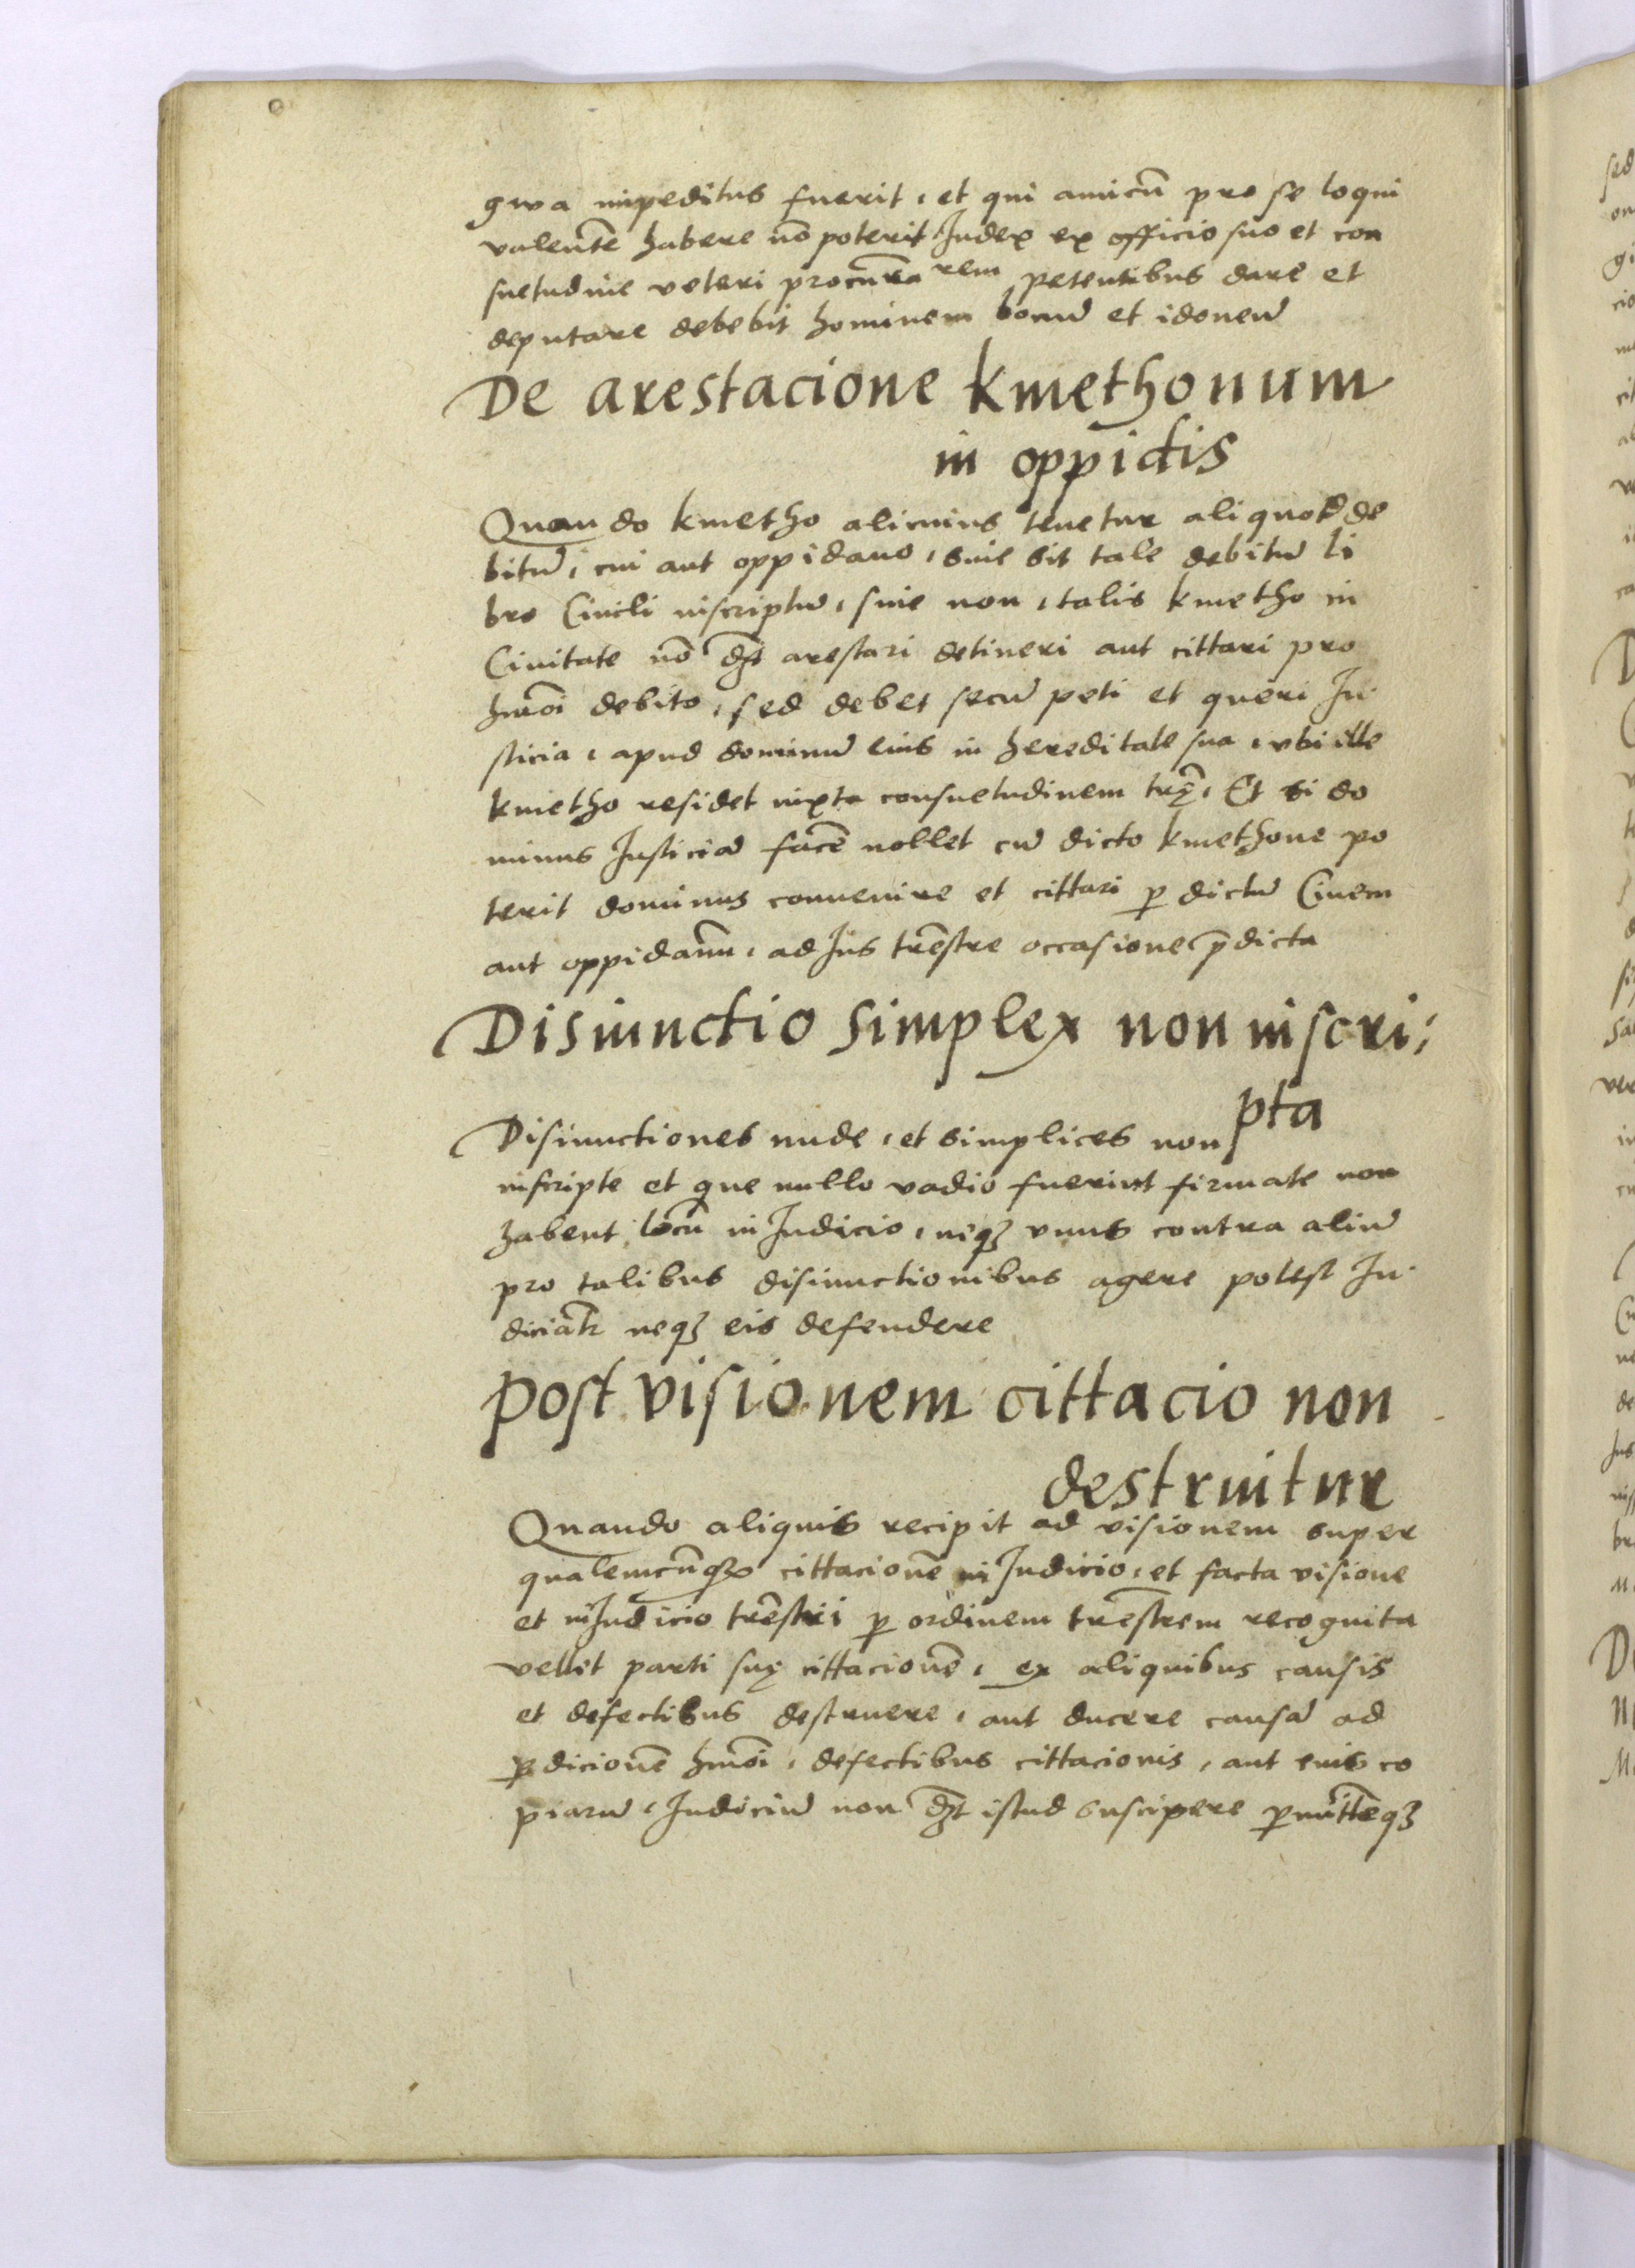 gwa impeditus fuerit, et qui amicū pro se loqui
valentē habere nō poterit Iudex ex officio suo et con
suetudine veteri procura rem petentibus dare et
deputare debebit hominem bonū et idoneū
De arestacione kmethonum
in oppidis
Quando kmetho alicuius tenetur aliquod de
bitū, cui aut oppidano, siue sit tale debitū li
bro Ciuili inscriptū, siue non, talis kmetho in
Ciuitate nō dƺt arestari detineri aut cittari pro
hmōi debito, sed debet secū peti et queri Iu
sticia, apud dominū eius in hereditate sua, vbi ille
kmetho residet iuxta consuetudinem trę̄. Et si do
minus Iusticiā facē nollet cū dicto kmethone po
terit dominus conuenire et cittari ꝑ dictū Ciuem
aut oppidanū, ad Ius trēstre occasione p̄dicta
Disiunctio simplex non inscri:
pta
Disiunctiones nude, et simplices non
inscripte et que nullo vadio fuerint firmate non
habent locū in Iudicio, neqꝫ vnus contra aliū
pro talibus disiunctionibus agere potest Iu
diciātr neqꝫ eis defendere
Post visionem cittacio non
destruitur
Quando aliquis recipit ad visionem super
qualemcūqꝫ cittacionē in Iudicio, et facta visione
et in Iudicio trēstri ꝑ ordinem trēstrem recognita
vellet parti suę cittacionē, ex aliquibus causis
et defectibus destruere, aut ducere causā ad
ꝑdicionē hmōi, defectibus cittacionis, aut eius co
piarū, Iudiciū non dƺt istud suscipere ꝑmitteqꝫ